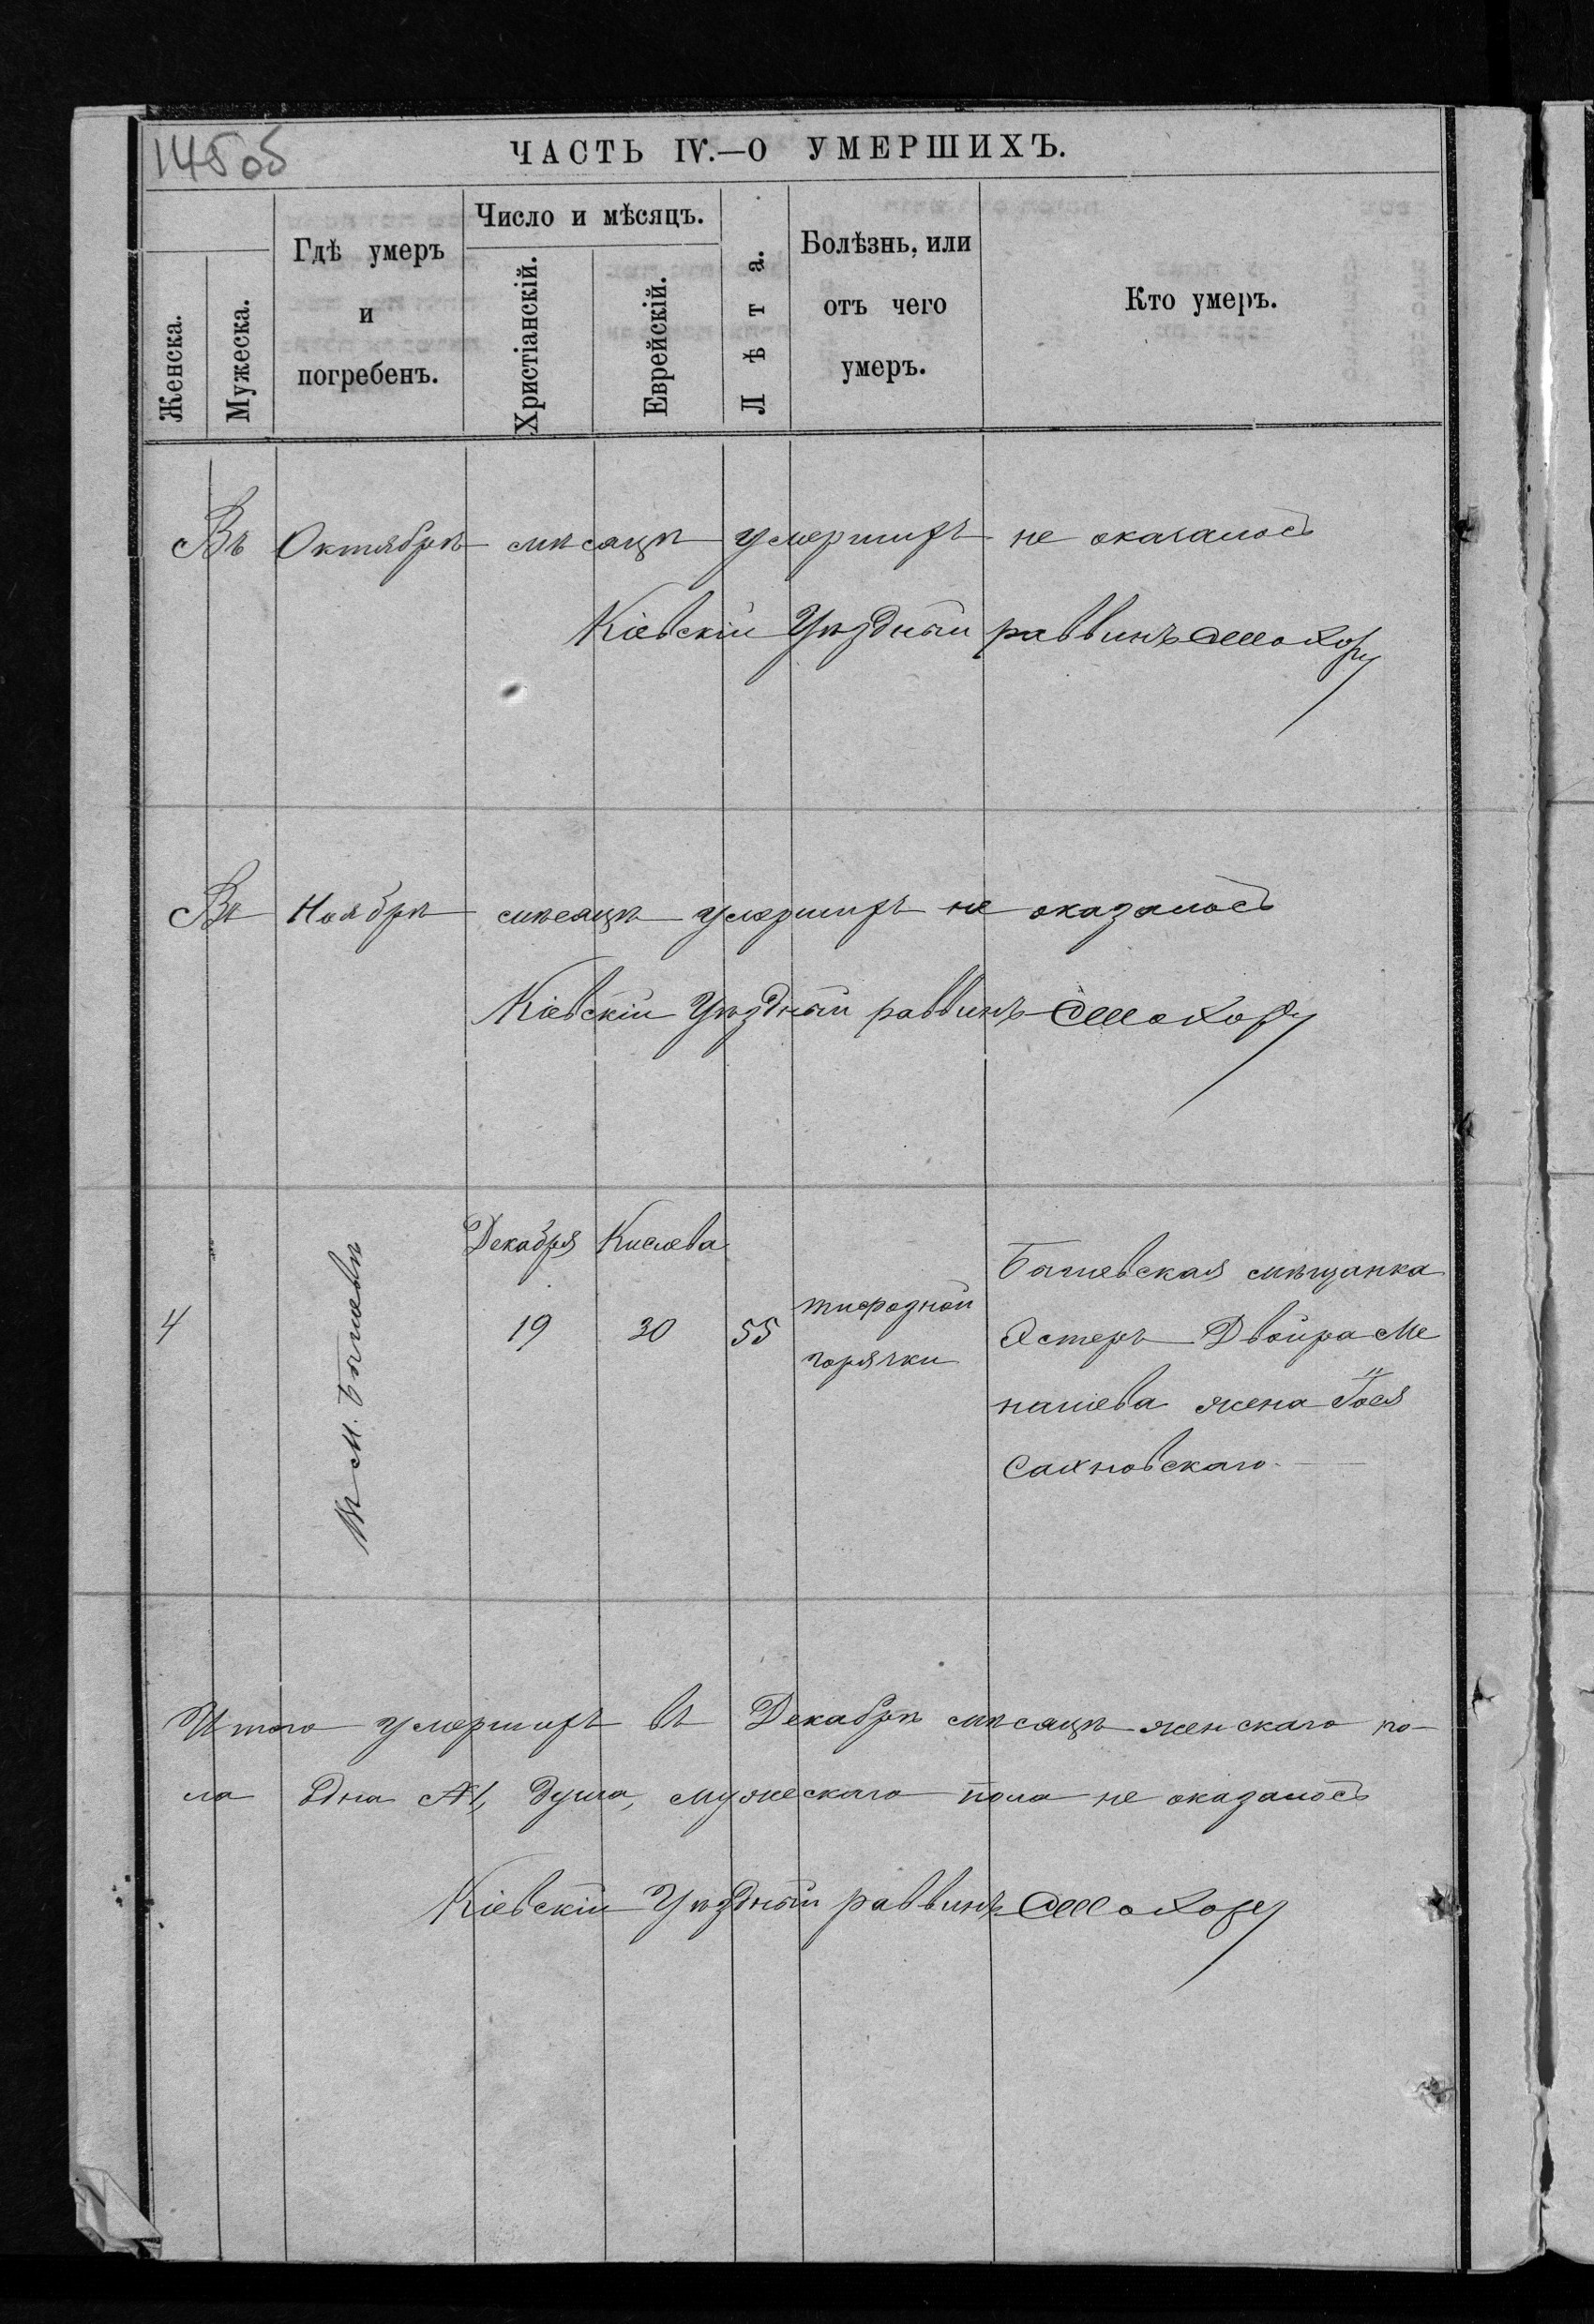 145 об
ЧАСТЬ IV.—О УМЕРШИХЪ.
Женска.
Мужеска.
Гдѣ умеръ
и
погребенъ.
Число и мѣсяцъ.
Христіанскій.
Еврейскій.
Лѣта.
Болѣзнь, или
отъ чего
умеръ.
Кто умеръ.
Въ Октябрѣ мѣсяцѣ умершихъ не оказалось
Кіевскій Уѣздный раввинъ
Въ Ноябрѣ мѣсяцѣ умершихъ не оказалось
Кіевскій Уѣздный раввинъ
4
Въ м.
Декабря
19
Кислева
30
55
тифозной
горячки
мѣщанка
Эстеръ Двойра Ме
нашева жена
Сахновскаго
Итого умершихъ въ Декабрѣ мѣсяцѣ женскаго по-
ла одна 1, душа, мужескаго пола не оказалось
Кіевскій Уѣздный раввинъ